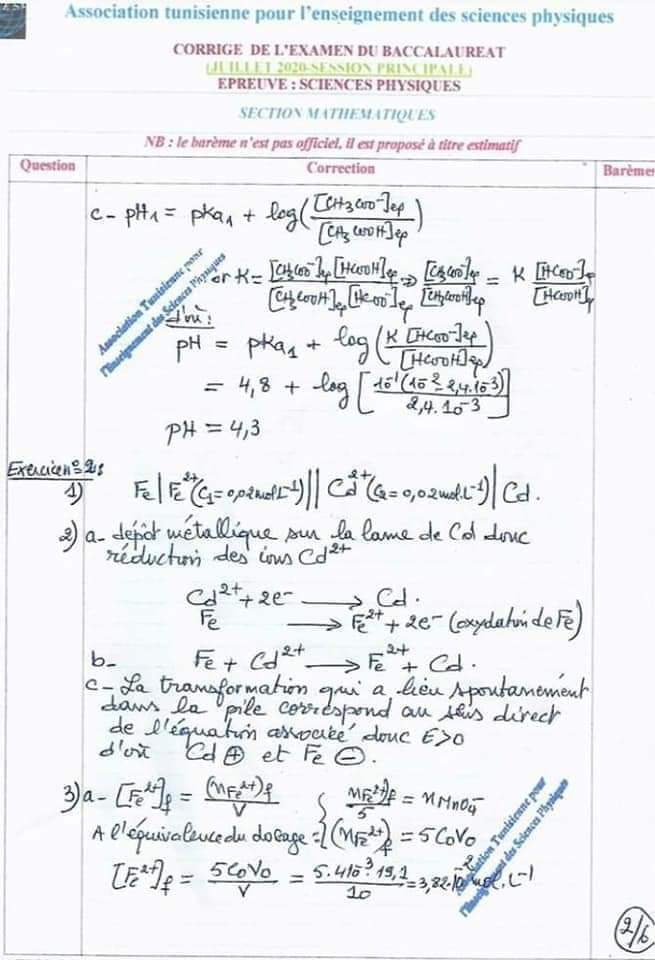 Association tunisienne pour l'enseignement des sciences physiques
CORRIGE DE L'EXAMEN DU BACCALAUREAT
(JUILLET 2020-SESSION PRINCIPALE)
EPREUVE : SCIENCES PHYSIQUES
SECTION MATHEMATIQUES
NB : le barème n'est pas officiel, il est proposé à titre estimatif
Question Correction Barème
c- pH₁ = pKa₁ + log([CH3COO⁻]ép / [CH3COOH]ép)
Association Tunisienne pour
l'Enseignement des Sciences Physiques
or K = [CH3COO⁻]ép [HCOOH]ép / [CH3COOH]ép [HCOO⁻]ép ⇒ [CH3COO⁻]ép / [CH3COOH]ép = K [HCOO⁻]ép / [HCOOH]ép
d'où :
pH = pKa₁ + log(K [HCOO⁻]ép / [HCOOH]ép)
= 4,8 + log[10⁻¹(10⁻² - 2,4.10⁻³) / 2,4.10⁻³]
pH = 4,3
Exercice n°2:
1) Fe | Fe²⁺(C₁=0,02mol.L⁻¹) || Cd²⁺(C₂=0,02mol.L⁻¹) | Cd.
2) a- dépôt métallique sur la lame de Cd donc
réduction des ions Cd²⁺
Cd²⁺ + 2e⁻ ⟶ Cd.
Fe ⟶ Fe²⁺ + 2e⁻ (oxydation de Fe)
b- Fe + Cd²⁺ ⟶ Fe²⁺ + Cd.
c- La transformation qui a lieu spontanément
dans la pile correspond au sens direct
de l'équation associée donc E>0
d'où Cd ⊕ et Fe ⊖.
3) a- [Fe²⁺]f = (nFe²⁺)f / V { (nFe²⁺)f / 5 = nMnO₄⁻
A l'équivalence du dosage = (nFe²⁺)f = 5C₀V₀
[Fe²⁺]f = 5C₀V₀ / V = 5.4.10⁻³.19,1 / 10 = 3,82.10⁻² mol.L⁻¹
Association Tunisienne pour
l'Enseignement des Sciences Physiques
2/6